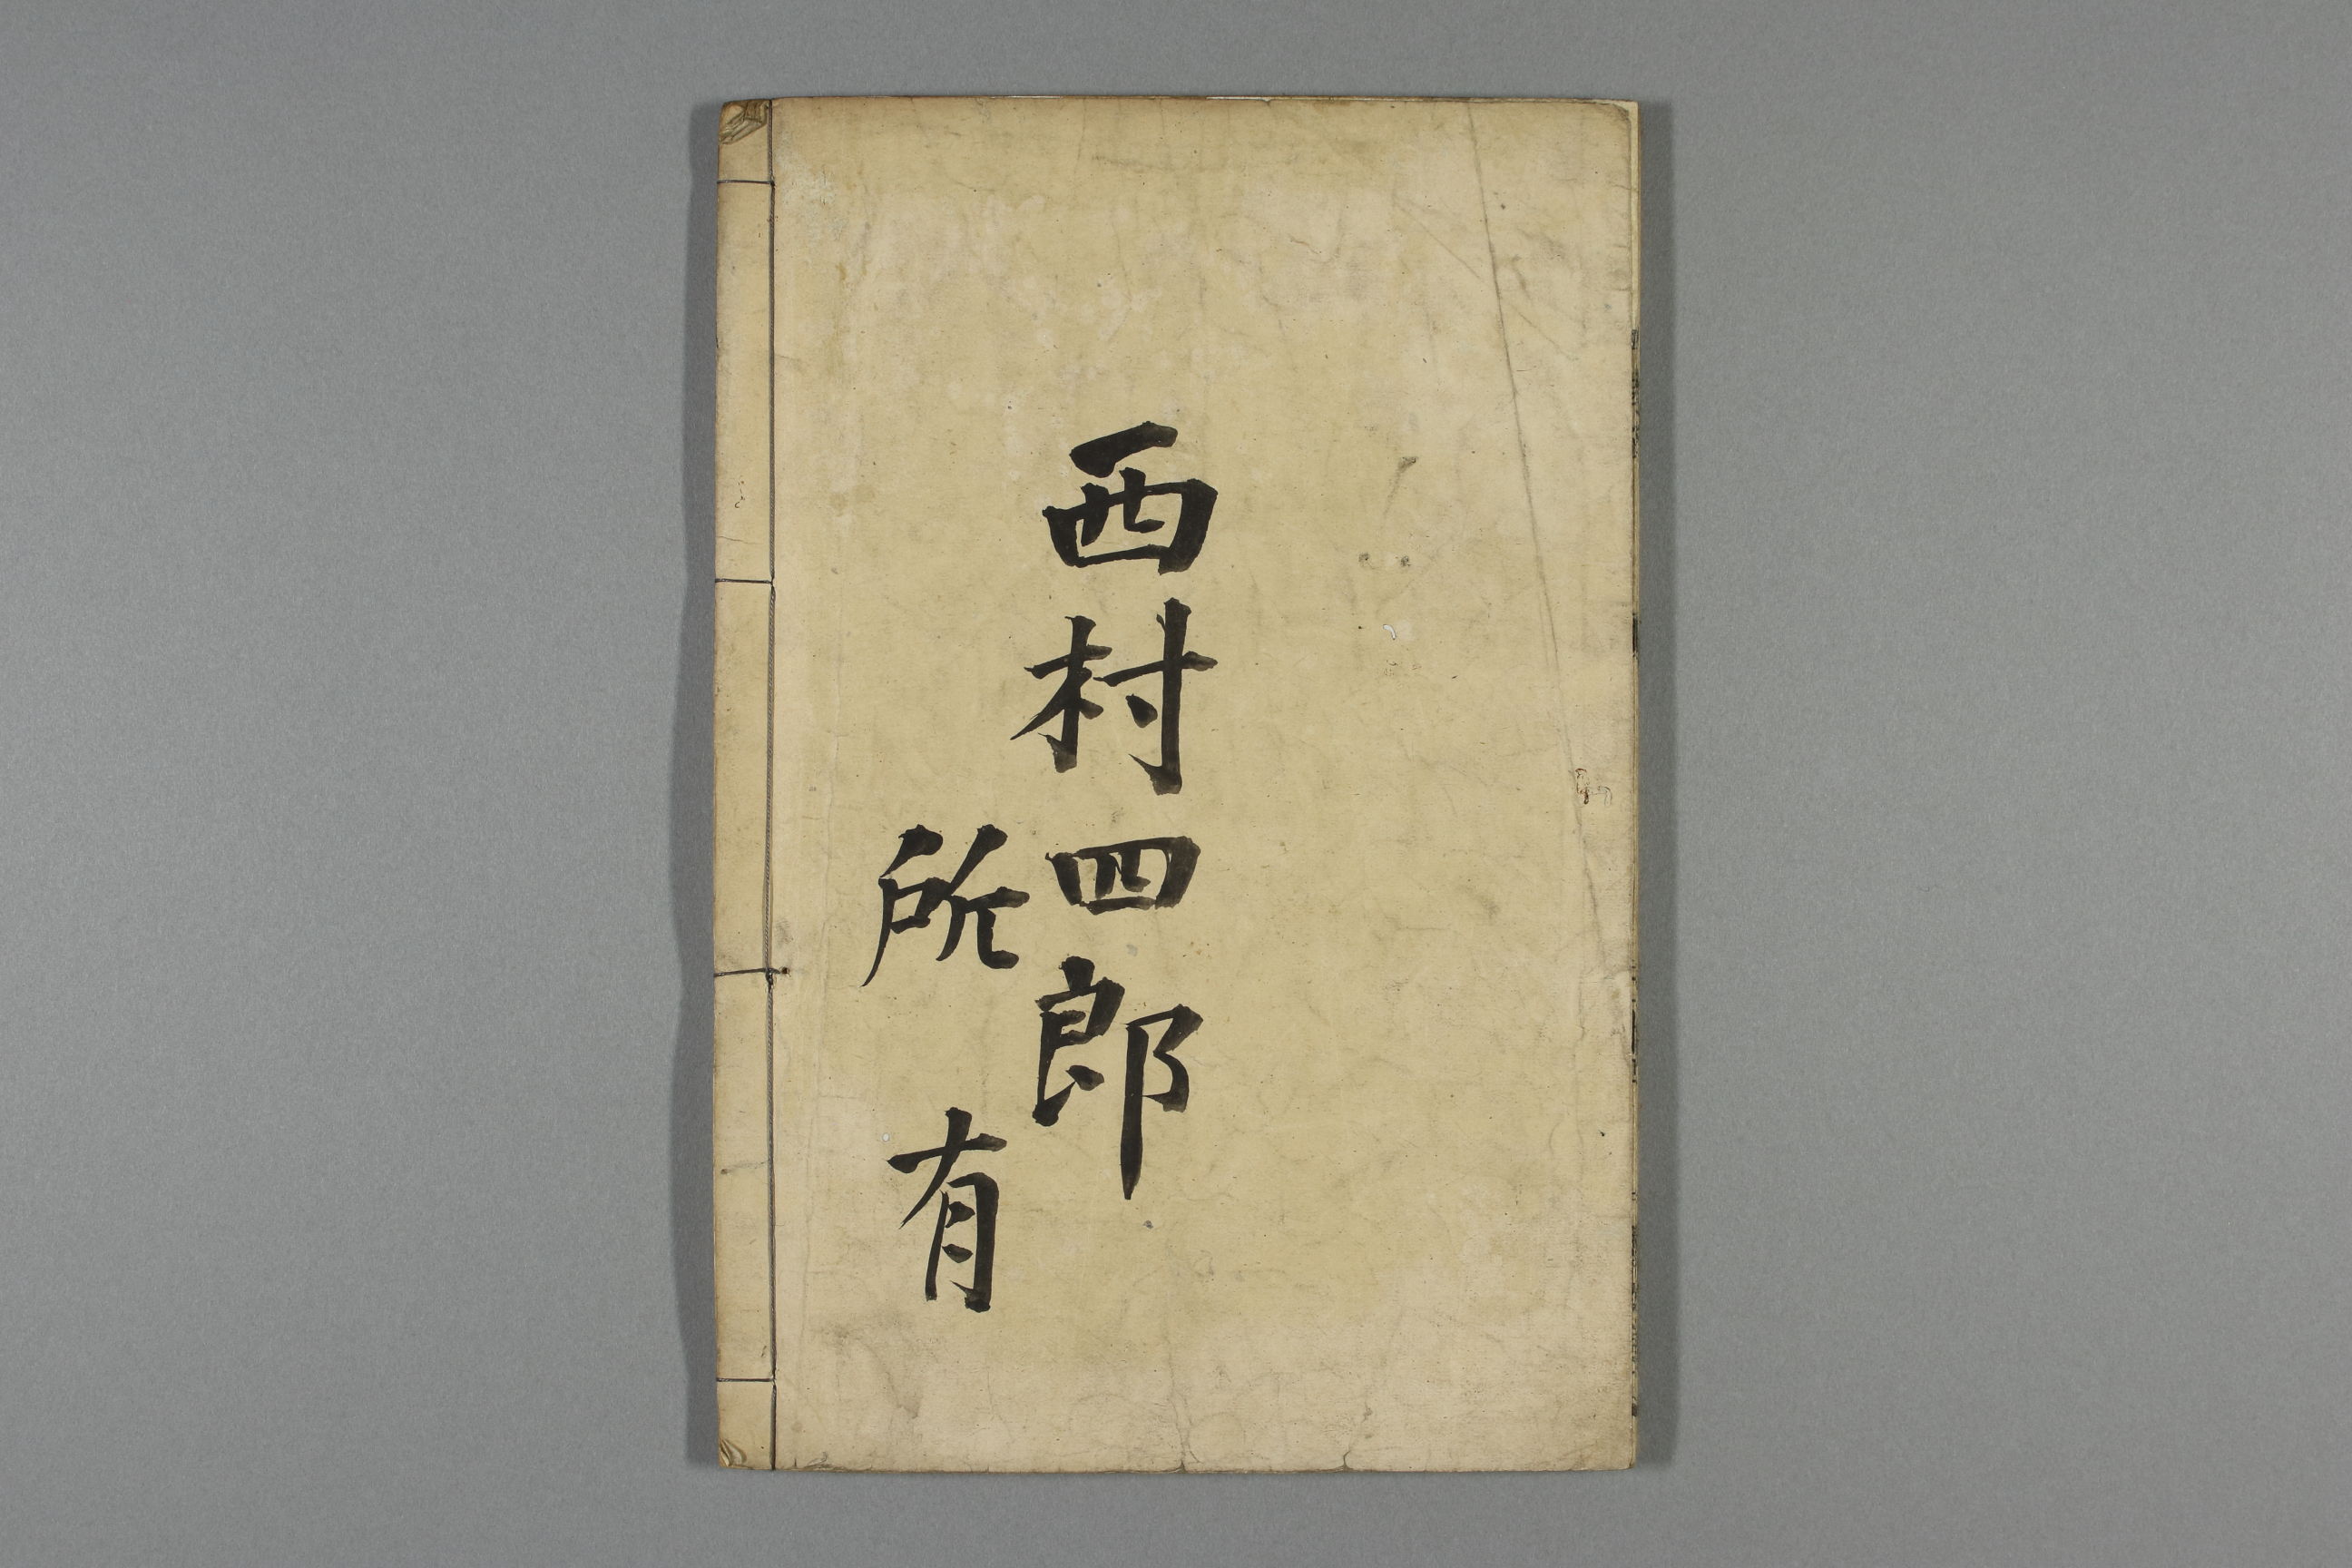 西村四郎
所有